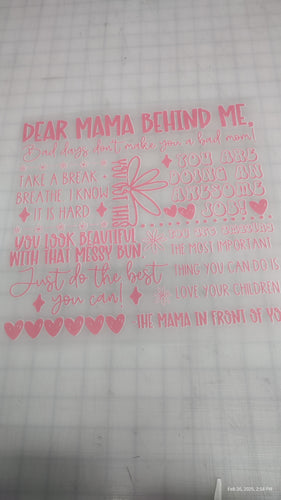 DEAR MAMA BEHIND ME,
Bad days don't make you a bad mom!
TAKE A BREAK
BREATHE I KNOW
IT IS HARD
YOU GOT THIS
YOU ARE
DOING AN
AWESOME
JOB!
YOU LOOK BEAUTIFUL
WITH THAT MESSY BUN
Just do the best
you can!
YOU ARE
THE MOST IMPORTANT
THING YOU CAN DO IS
LOVE YOUR CHILDREN
THE MAMA IN FRONT OF YO
Feb 26, 2025, 2:14 PM